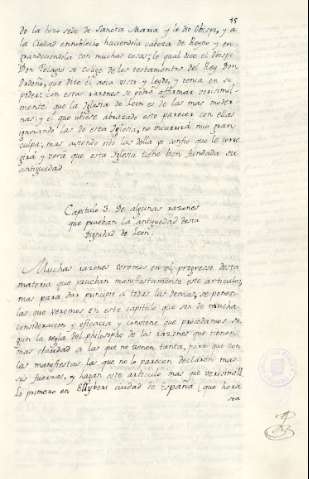 15
de la hizo sede de Sancta Maria y le dio Obispo, y a
la Ciudad ennoblecio haciendola cabeza de Reyno y en-
grandeciendola con muchas cosas; lo qual dice el Obispo
Don Pelagio se colige de los testamentos del Rey Don
Ordoño, que dice el avia visto y leydo, y tenia en su
poder. con estas razones se podra affirmar verisimil-
mente que la Iglesia de Leon es de las mas moder-
nas, y el que ubiese abrazado este parecer con ellas
ignorando las de esta Iglesia, no incurrirá mui gran
culpa, mas aviendo oido las della yo confio que lo corre-
girá y vera que esta Iglesia tiene bien fundada su
antiguedad
Capitulo 3. De algunas razones
que prueban la antiguedad desta
Dignidad de Leon.
Muchas razones tocaremos en el progreso desta
materia que prueban manifiestamente este articulo,
mas para dar principio a todas las demas, se ponen
las que veremos en este capitulo que son de mucha
consideracion y eficacia y conviene que procedamos se-
gun la regla del philosopho de las razones que tienen
mas claridad a las que no tienen tanta, para que con
las manifiestas las que no lo parecen declaren mas
sus fuerzas, y hagan este articulo mas que verisimil
lo primero en Elyberi ciudad de España, que hora
era